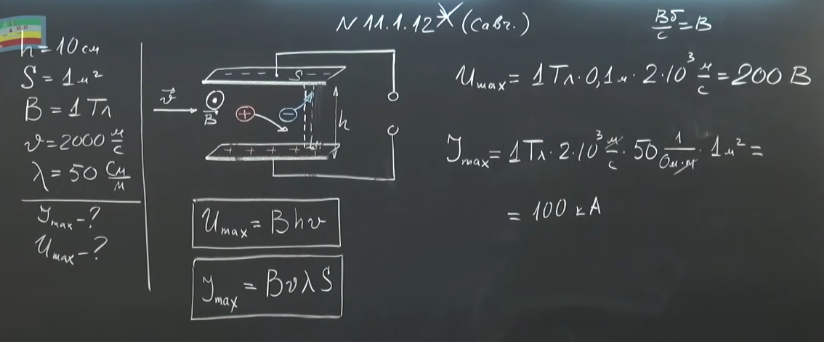 N 11.1.12* (Савч.)
Вб/с = В
h = 10 см
S = 1 м²
B = 1 Тл
v = 2000 м/с
λ = 50 См/м
J max - ?
U max - ?
v
B
+
−
S
h
+ + + + +
U max = Bhv
J max = BvλS
U max = 1 Тл · 0,1 м · 2·10³ м/с = 200 В
J max = 1 Тл · 2·10³ м/с · 50 1/Ом·м · 1 м² =
= 100 кА